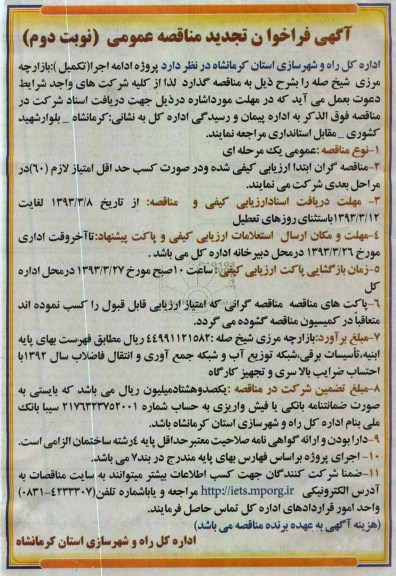 آگهی فراخوان تجدید مناقصه عمومی (نوبت دوم)
اداره کل راه و شهرسازی استان کرمانشاه در نظر دارد پروژه ادامه اجرا(تکمیل ):بازارچه
مرزی شیخ صله را بشرح ذیل به مناقصه گذارد لذا از کلیه شرکت های واجد شرایط
دعوت بعمل می آید که در مهلت مورداشاره درذیل جهت دریافت اسناد شرکت در
مناقصه فوق الذکر به اداره پیمان و رسیدگی اداره کل به نشانی:کرمانشاه _ بلوارشهید
کشوری _ مقابل استانداری مراجعه نمایند.
۱-نوع مناقصه :عمومی یک مرحله ای
۲-مناقصه گران ابتدا ارزیابی کیفی شده ودر صورت کسب حد اقل امتیاز لازم (۶۰)در
مراحل بعدی شرکت می نمایند.
۳- مهلت دریافت اسنادارزیابی کیفی و مناقصه: از تاریخ ۱۳۹۳/۳/۸ لغایت
۱۳۹۳/۳/۱۲باستثنای روزهای تعطیل
۴-مهلت و مکان ارسال استعلامات ارزیابی کیفی و پاکت پیشنهاد:تاآخروقت اداری
مورخ ۱۳۹۳/۳/۲۶ درمحل دبیرخانه اداره کل می باشد .
۵-زمان بازگشایی پاکت ارزیابی کیفی : ساعت ۱۰صبح مورخ ۱۳۹۳/۳/۲۷ درمحل اداره
کل
۶-پاکت های مناقصه مناقصه گرانی که امتیاز ارزیابی قابل قبول را کسب نموده اند
متعاقباً در کمیسیون مناقصه گشوده می گردد.
۷-مبلغ برآورد:بازارچه مرزی شیخ صله :۴۴۹۹۱۱۲۱۵۸۲ ریال مطابق فهرست بهای پایه
ابنیه،تأسیسات برقی،شبکه توزیع آب و شبکه جمع آوری و انتقال فاضلاب سال ۱۳۹۲با
احتساب ضرایب بالا سری و تجهیز کارگاه
۸-مبلغ تضمین شرکت در مناقصه :یکصدوهشتادمیلیون ریال می باشد که بایستی به
صورت ضمانتنامه بانکی یا فیش واریزی به حساب شماره ۲۱۷۶۲۳۷۵۲۰۰۱ سیبا بانک
ملی بنام اداره کل راه و شهرسازی استان کرمانشاه باشد.
۹-دارا بودن و ارائه گواهی نامه صلاحیت معتبرحداقل پایه ۴رشته ساختمان الزامی است.
۱۰- اجرای پروژه براساس فهارس بهای پایه مندرج در بند۷ می باشد.
۱۱-ضمنا شرکت کنندگان جهت کسب اطلاعات بیشتر میتوانند به سایت مناقصات به
آدرس الکترونیکی http://iets.mporg.ir مراجعه و یاباشماره تلفن(۴۲۳۳۳۰۷-۰۸۳۱)
واحد امور قراردادهای اداره کل تماس حاصل فرمایند.
(هزینه آگهی به عهده برنده مناقصه می باشد)
اداره کل راه و شهرسازی استان کرمانشاه